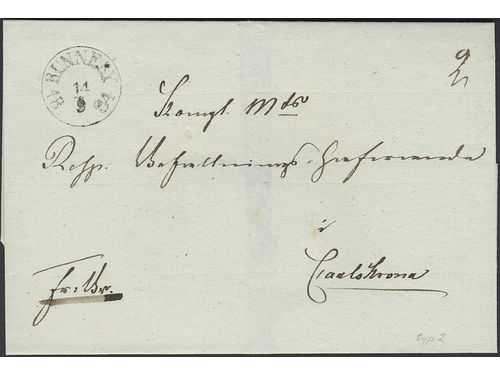 BRUNNEBY
14
9
Kongl. Mds
Resp. Befallnings-Hafwande
i
Carlskrona
Fr: Br.
typ 2